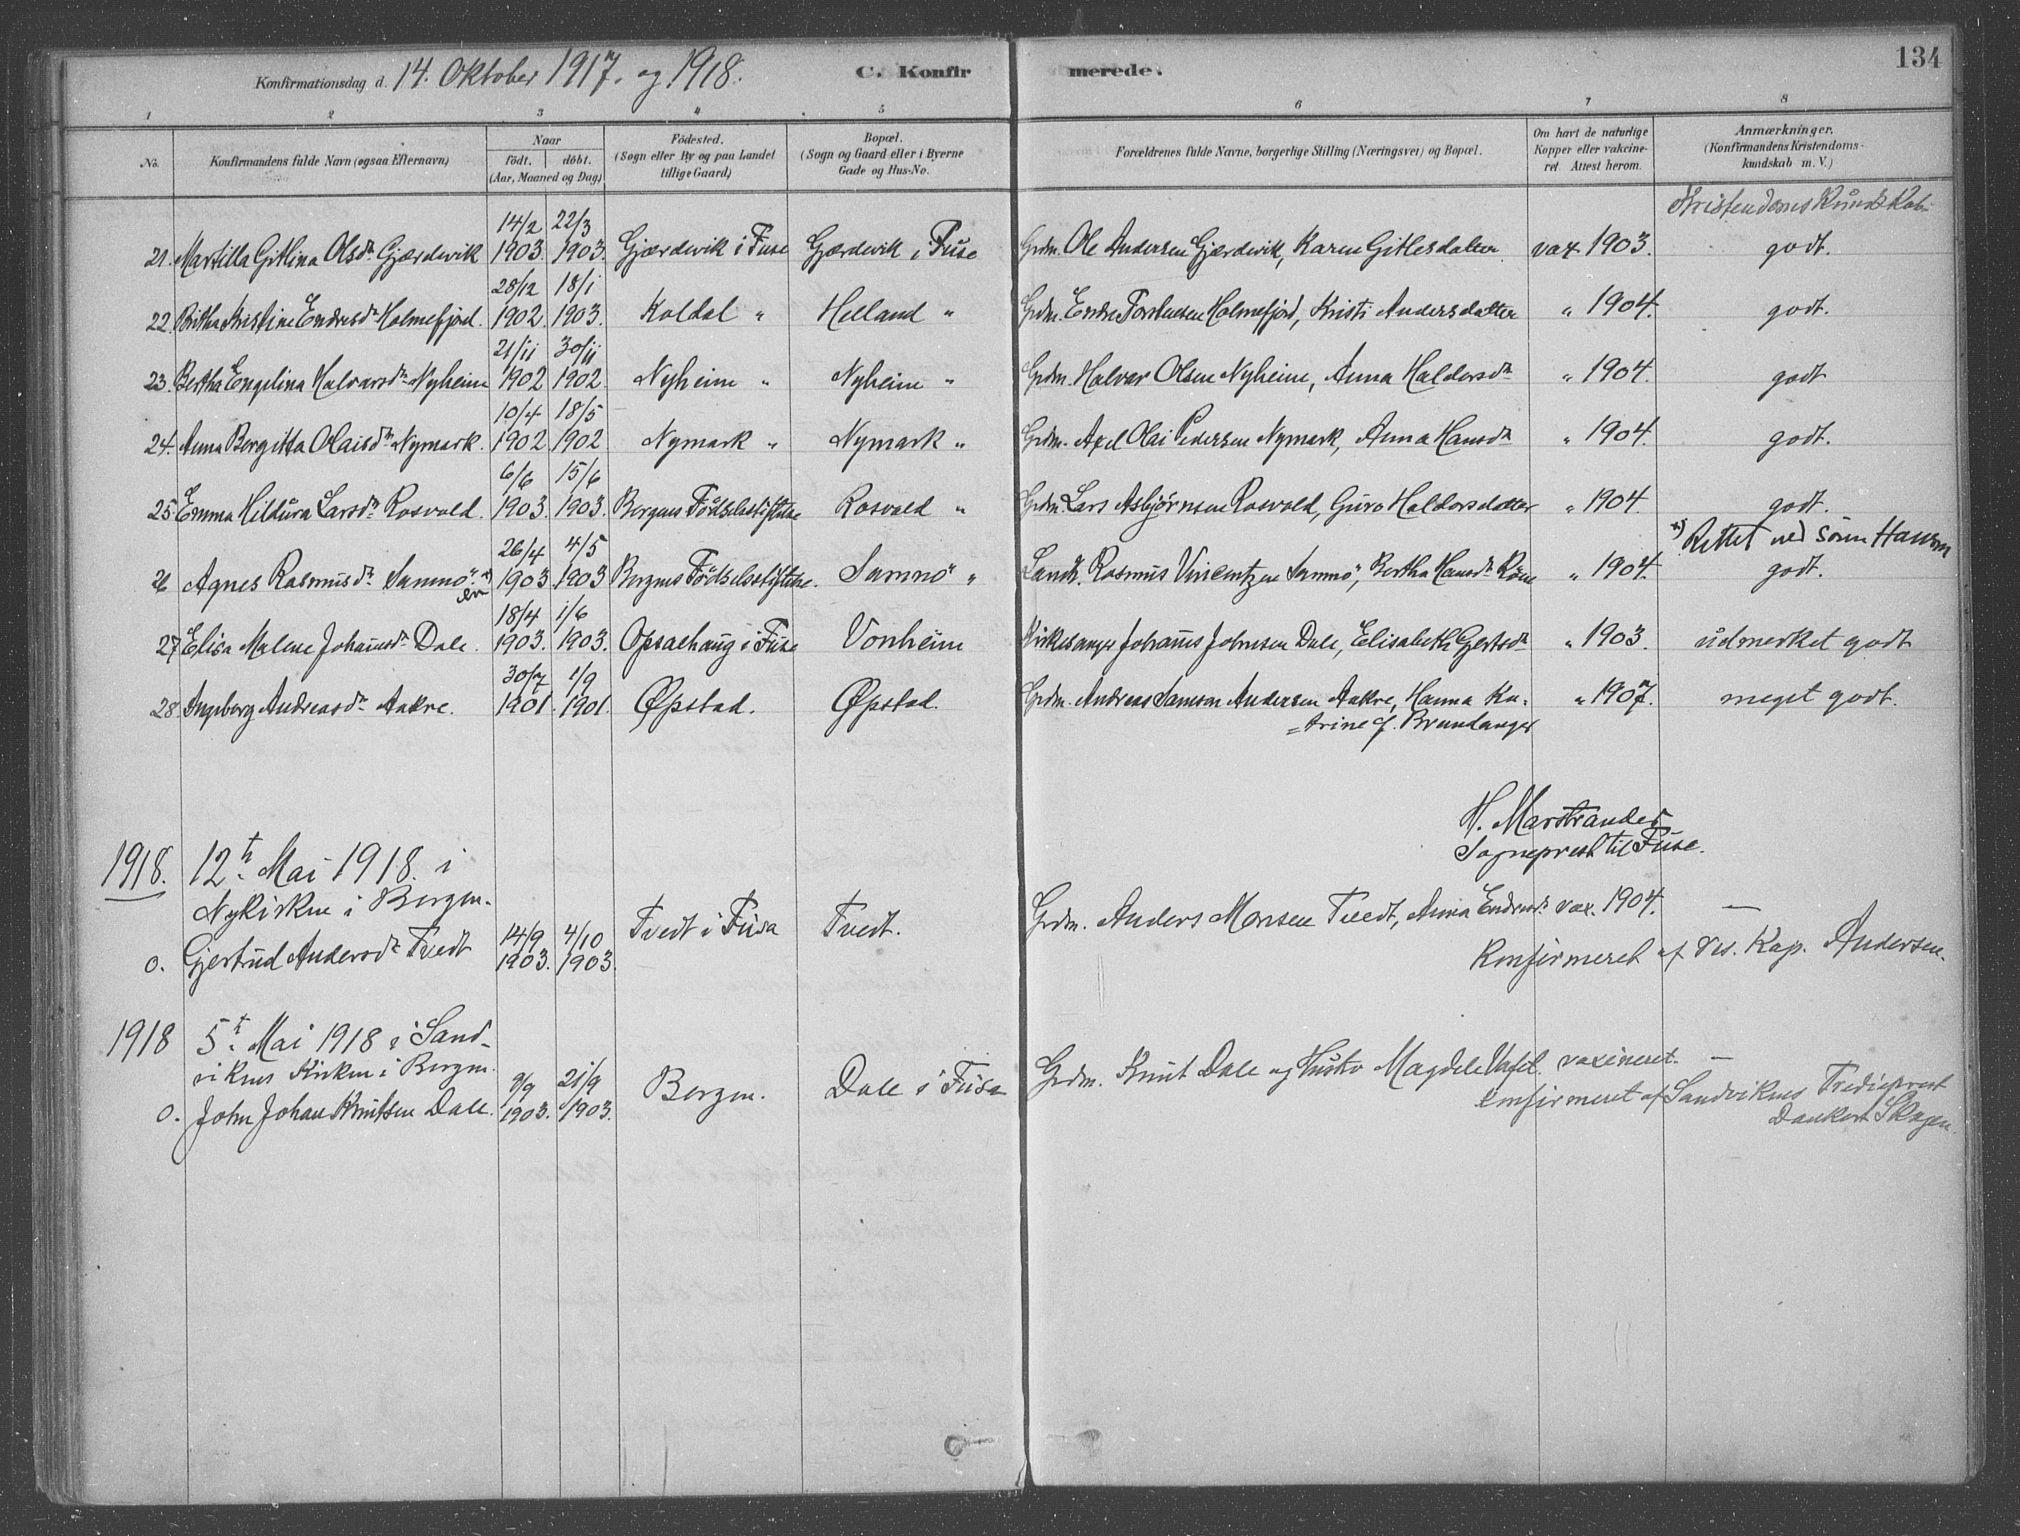 134
Konfirmationsdag d. 14. Oktober 1917. og 1918.
C. Konfirmerede.
1 2 3 4 5 6 7 8
No.
Konfirmandens fulde Navn (ogsaa Efternavn)
Naar
født. døbt.
(Aar, Maaned og Dag)
Födested.
(Sogn eller By og paa Landet
tillige Gaard)
Bopæl.
(Sogn og Gaard eller i Byerne
Gade og Hus-No.
Forældrenes fulde Navne, borgerlige Stilling (Næringsvei) og Bopæl.
Om havt de naturlige
Kopper eller vakcine-
ret. Attest herom.
Anmærkninger.
(Konfirmandens Kristendoms-
kundskab m. V.)
Kristendomskundskab
14/2 22/3
21. Martilla Gitlina Olsdr Gjærdevik 1903. 1903. Gjærdevik i Fuse Gjærdevik i Fuse Grdm. Ole Andersen Gjærdevik, Karen Gitlesdatter vax. 1903. godt.
28/12 18/1
22. Britha Kristine Endresdr Holmefjord. 1902. 1903. Koldal " Helland " Grdm. Endre Torstensen Holmefjord, Kristi Andersdatter " 1904. godt.
21/11 30/11
23. Bertha Engelina Halvorsdr Nyheim 1902 1902. Nyheim " Nyheim " Grdm. Halvor Olsen Nyheim, Anna Haldorsdr " 1904. godt
10/4 18/5
24. Anna Bergitta Olaisdr Nymark. 1902 1902 Nymark " Nymark " Grdm. Axel Olai Pedersen Nymark, Anna Hansdr " 1904. godt.
6/6 15/6
25. Emma Hildura Larsdr Rosvold. 1903. 1903. Bergens Fødselsstiftelse Rosvold " Grdm. Lars Asbjørnsen Rosvold, Guro Haldorsdatter " 1904. godt.
x) Rettet ved Sören Hansen
26/4 4/5
26 Agnes Rasmusdr Samnö x) 1903. 1903 Bergens Födselsstiftelse. Samnö " Rasmus Vincentzen Samnö, Bertha Hansdr " 1904. godt.
18/4 1/6
27 Elisa Malene Johannesdr Dale. 1903. 1903. Opsalhaug i Fuse Vonheim Kirkesanger Johannes Johnsen Dale, Elisabeth Gjertsdr " 1903. udmerket godt
30/7 1/9
28 Ingeborg Andreasdr Aakre. 1901. 1901. Øpstad. Øpstad. Grdm. Andreas Samson Andersen Aakre, Hanna Ka- " 1907. meget godt.
=trine f. Brundanger
H. Marstrander
Sogneprest til Fuse.
1918. 12te Mai 1918. i
Nykirken i Bergen.
0. Gjertrud Andersdr Tvedt 14/9 1903. 4/10 1903. Tvedt i Fusa Tvedt. Grdm. Anders Monsen Tvedt, Anna Endresdr vax. 1904. —
Konfirmeret af res. Kap. Andersen.
1918 5te Mai 1918 i Sand-
vikens Kirken i Bergen.
0. John Johan Knutsen Dale. 9/9 1903. 21/9 1903. Bergen. Dale i Fusa Grdm. Knut Dale og Hustro Magdele vaxineret. —
konfirmeret af Sandvikens Tredieprest
Dankert Skagen.